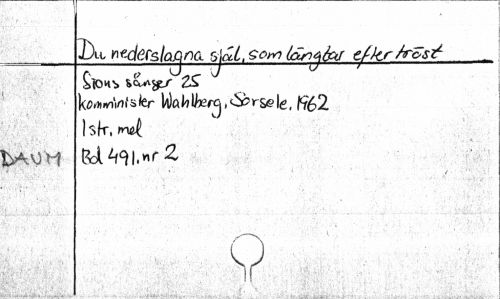 Du nederslagna själ, som längtar efter tröst
Sions sånger 25
komminister Wahlberg, Sorsele, 1962
1 str, mel
DAUM Bd 491, nr 2